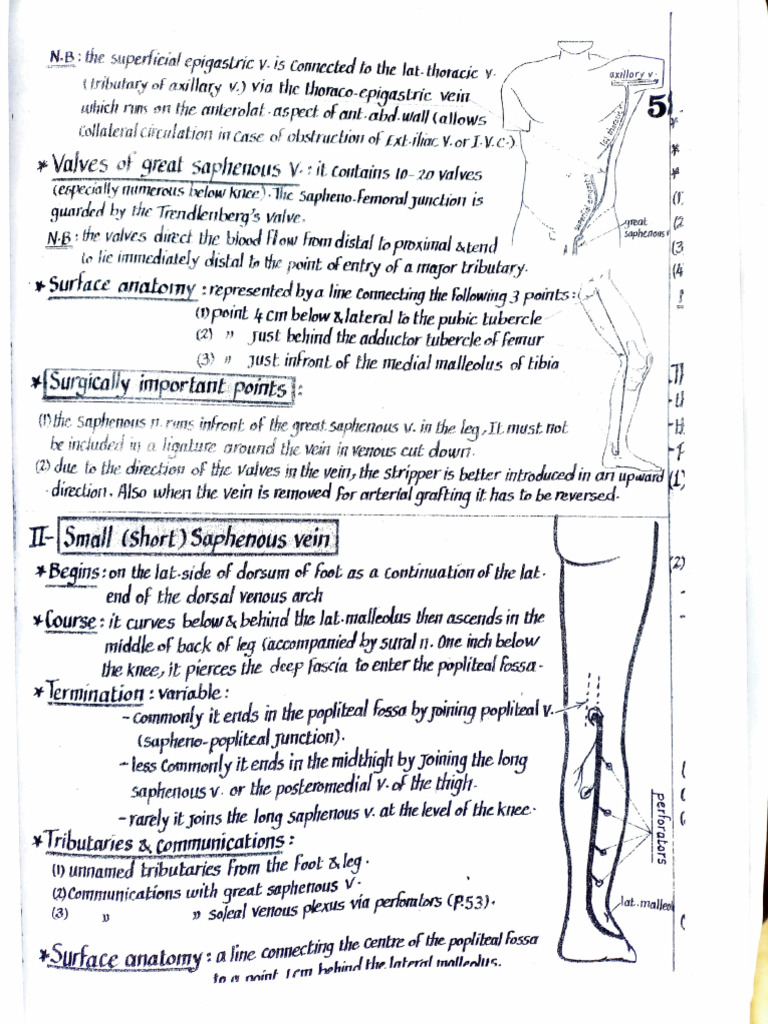 N.B: the superficial epigastric v. is connected to the lat. thoracic v.
(tributary of axillary v.) via the thoraco-epigastric vein
which runs on the anterolat. aspect of ant. abd. wall (allows
collateral circulation in case of obstruction of Ext. iliac V. or I.V.C.)
axillary v.
5
lat thoracic v.
great
saphenous v
* Valves of great saphenous V.: it contains 10-20 valves
(especially numerous below knee). The sapheno-femoral junction is
guarded by the Trendlenberg's valve.
N.B: the valves direct the blood flow from distal to proximal & tend
to lie immediately distal to the point of entry of a major tributary.
* Surface anatomy: represented by a line connecting the following 3 points:
(1) point 4 cm below & lateral to the pubic tubercle
(2) " just behind the adductor tubercle of femur
(3) " just infront of the medial malleolus of tibia
* Surgically important points:
(1) the saphenous n. runs infront of the great saphenous v. in the leg, It must not
be included in a ligature around the vein in venous cut down.
(2) due to the direction of the valves in the vein, the stripper is better introduced in an upward
direction. Also when the vein is removed for arterial grafting it has to be reversed.
II- Small (short) Saphenous vein
* Begins: on the lat. side of dorsum of foot as a continuation of the lat.
end of the dorsal venous arch
* Course: it curves below & behind the lat. malleolus then ascends in the
middle of back of leg (accompanied by sural n. One inch below
the knee, it pierces the deep fascia to enter the popliteal fossa.
* Termination: variable:
- commonly it ends in the popliteal fossa by joining popliteal v.
(sapheno-popliteal junction).
- less commonly it ends in the midthigh by joining the long
saphenous v. or the posteromedial v. of the thigh.
- rarely it joins the long saphenous v. at the level of the knee.
* Tributaries & communications:
(1) unnamed tributaries from the foot & leg.
(2) Communications with great saphenous v.
(3) " " soleal venous plexus via perforators (P.53).
perforators
lat. malleol
* Surface anatomy: a line connecting the centre of the popliteal fossa
to a point 1cm behind the lateral malleolus.